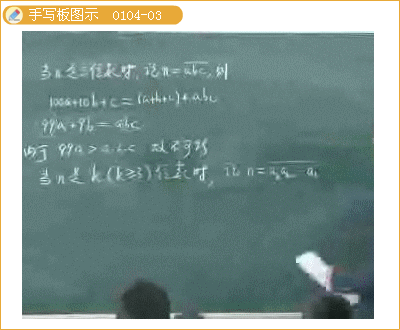 手写板图示 0104-03
当n是三位数时,记n=abc,则
100a+10b+c=(a+b+c)+abc
99a+9b=abc
由于 99a>abc 故不可能
当n是k(k≥3)位数时,记n=